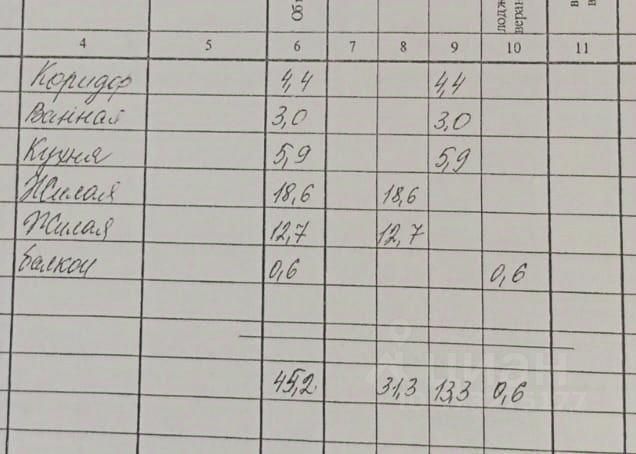 Об
лодж
веран
в
в
4 5 6 7 8 9 10 11
Коридор 4,4 4,4
Ванная 3,0 3,0
Кухня 5,9 5,9
Жилая 18,6 18,6
Жилая 12,7 12,7
балкон 0,6 0,6
45,2 31,3 13,3 0,6
циан